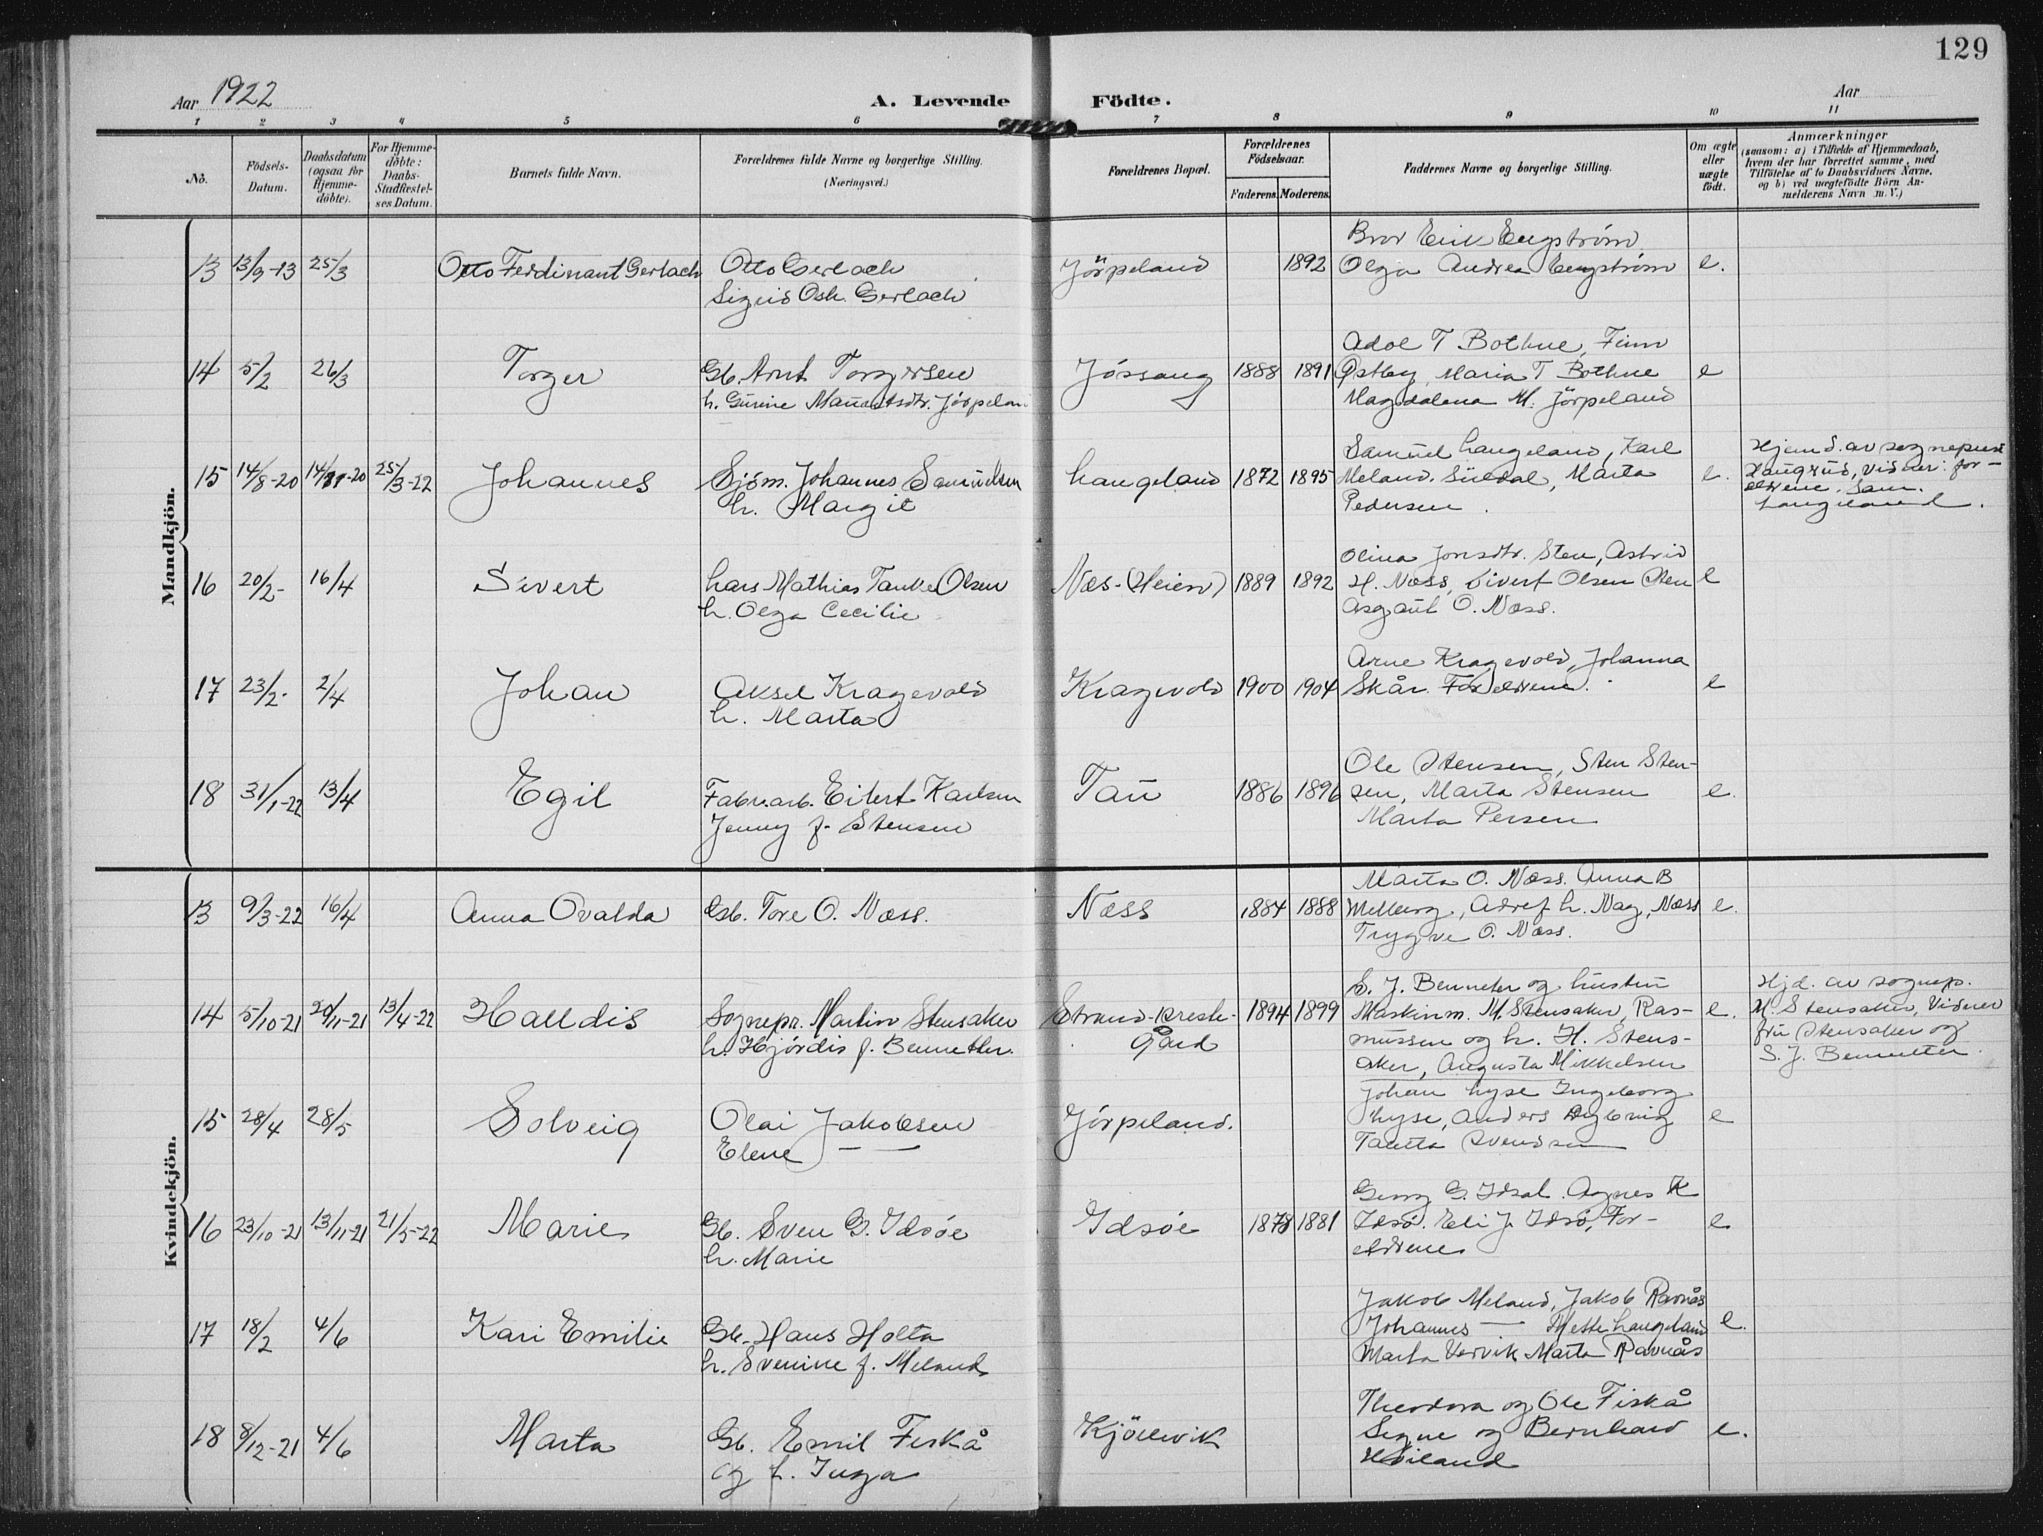 129
Aar 1922
A. Levende Födte.
Aar
1 2 3 4 5 6 7 8 9 10 11
No.
Födsels-Datum.
Daabsdatum (ogsaa for Hjemme-döbte).
For Hjemme-döbte: Daabs-Stadfæstel-ses Datum.
Barnets fulde Navn.
Forældrenes fulde Navne og borgerlige Stilling. (Næringsvei.)
Forældrenes Bopæl.
Forældrenes Födselsaar.
Faderens. Moderens.
Faddernes Navne og borgerlige Stilling.
Om ægte eller uægte födt.
Anmærkninger
(saasom: a) i Tilfælde af Hjemmedaab,
hvem der har forrettet samme, med
Tilföielse af to Daabsvidners Navne,
og b) ved uægtefödte Börn An-
melderens Navn m. V.)
Mandkjön.
Bror Erik Engström
13 13/9-13 25/3 Otto Ferdinant Gerlach Otto Gerlach Jörpeland 1892 Olga Andrea Engström e.
Sigrid Osk. Gerlach
Adol T Bothne, Finn
14 5/2 26/3 Torger Gb. Arnt Torgersen Jössang 1888 1891 Østby, Maria T Bothne e
h. Gurine Jörpeland Magdalena M. Jörpeland
Samuel Langeland, Karl Hjemd. av sognepr
15 14/8-20 14/11-20 25/3-22 Johannes Sjöm. Johannes Samuelsen Langeland 1872 1895 Meland, Marta e. Haugrud, Vidner: for-
h. Margit Pedersen. eldrene, Sam.
Langeland.
Olina Jonsdtr. Sten, Astrid
16 20/2- 16/4 Sivert Lars Mathias Tanke Olsen Næs-(Heien) 1889 1892 H. Næss, Sivert Olsen Sten e
h. Olga Cecilie Asgaut O. Næss.
Arne Kragevold, Johanna
17 23/2- 2/4 Johan Aksel Kragevold Kragevold 1900 1904 Skår. Foreldrene. e
h. Marta
Ole Stensen, Sten Sten-
18 31/1-22 13/4 Egil Fabr.arb. Eilert Karlsen Tau 1886 1896 sen, Marta Stensen e.
Jenny f. Stensen Marta Persen
Kvindekjön.
Marta O. Næss. Anna B
13 9/3-22 16/4 Anna Ovalda Gb. Tore O. Næss. Næss 1884 1888 Melberg, Næss e.
Trygve O. Næss.
S. J. Benneter og hustru Hjd. av sognep.
14 5/10-21 20/11-21 13/4-22 Halldis Sognepr. Martin Stensaker Strand-prests- 1894 1899 Maskinm. M. Stensaker, Ras- e. M. Stensaker, Vidner
h. Hjördis f. Bennetter. gård mussen og h. H. Stens- fru Stensaker og
aker, Augusta Mikkelsen S. J. Bennetter.
Johan Lyse Ingeborg
15 28/4 28/5 Solveig Olai Jakobsen Jörpeland. Lyse, Anders e
Elene — — Svendsen
Georg G. Idsal. Agnes K
16 23/10-21 13/11-21 21/5-22 Marie Gb. Sven G. Idsöe Idsöe 1878 1881 Idsö. Eli J. Idsö, For- e
h. Marie eldrene
Jakob Meland, Jakob Ravnås
17 18/2 4/6 Kari Emilie Gb. Hans Holta Johannes — Mette Langeland e.
h. Svenine f. Meland Marta Vervik Marta Ravnås
Theodora og Ole Fiskå
18 8/12-21 4/6 Marta Gb. Emil Fiskå Kjölevik Signe og Bernhard e.
og f. Inga Höiland